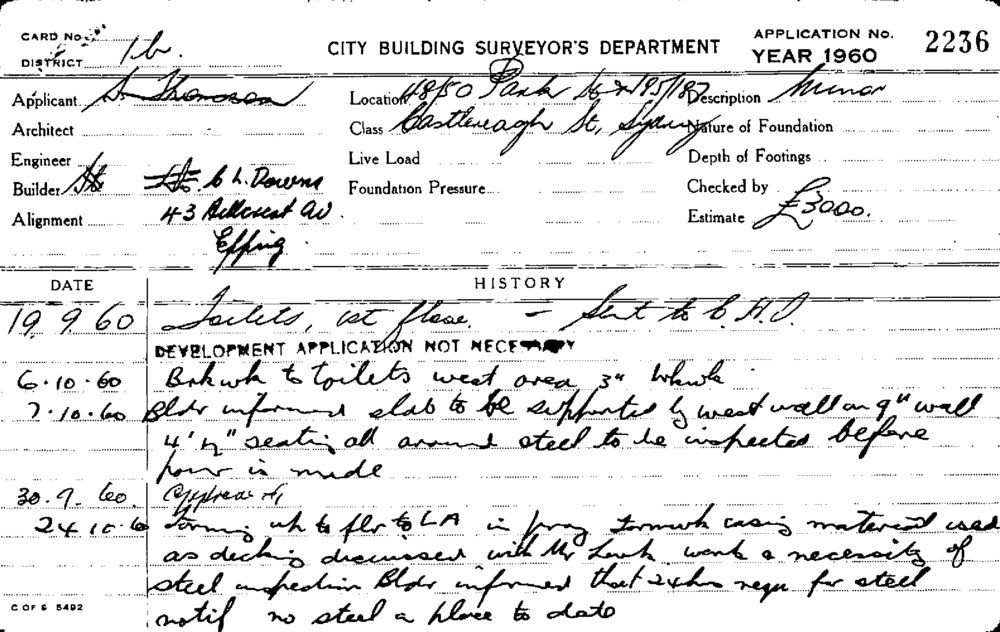 CARD No.
DISTRICT 1b.
CITY BUILDING SURVEYOR'S DEPARTMENT
APPLICATION No. 2236
YEAR 1960
Applicant Thomson
Location 48/50 Park St & 185/187
Description Minor
Architect
Class Castlereagh St, Sydney
Nature of Foundation
Engineer
Live Load
Depth of Footings
Builder C L. Downs
Foundation Pressure
Checked by
Alignment 43 Hillcrest Av
Estimate £3000.
Epping
DATE
HISTORY
19 9 60 Toilets, 1st floor. - Sent to C.H.O.
DEVELOPMENT APPLICATION NOT NECESSARY
6.10.60 Brkwk to toilets west area 3" brkwk
7.10.60 Bldr informed slab to be supported by west wall on 9" wall
4'½" seating all around steel to be inspected before
pour is made
30.9.60 Approved
24 10.60 Forming up to flr to LA in prog formwk casing material used
as decking discussed with Mr work a necessity of
steel inspection Bldr informed that 24hrs requ for steel
notif no steel in place to date
C OF S 5492